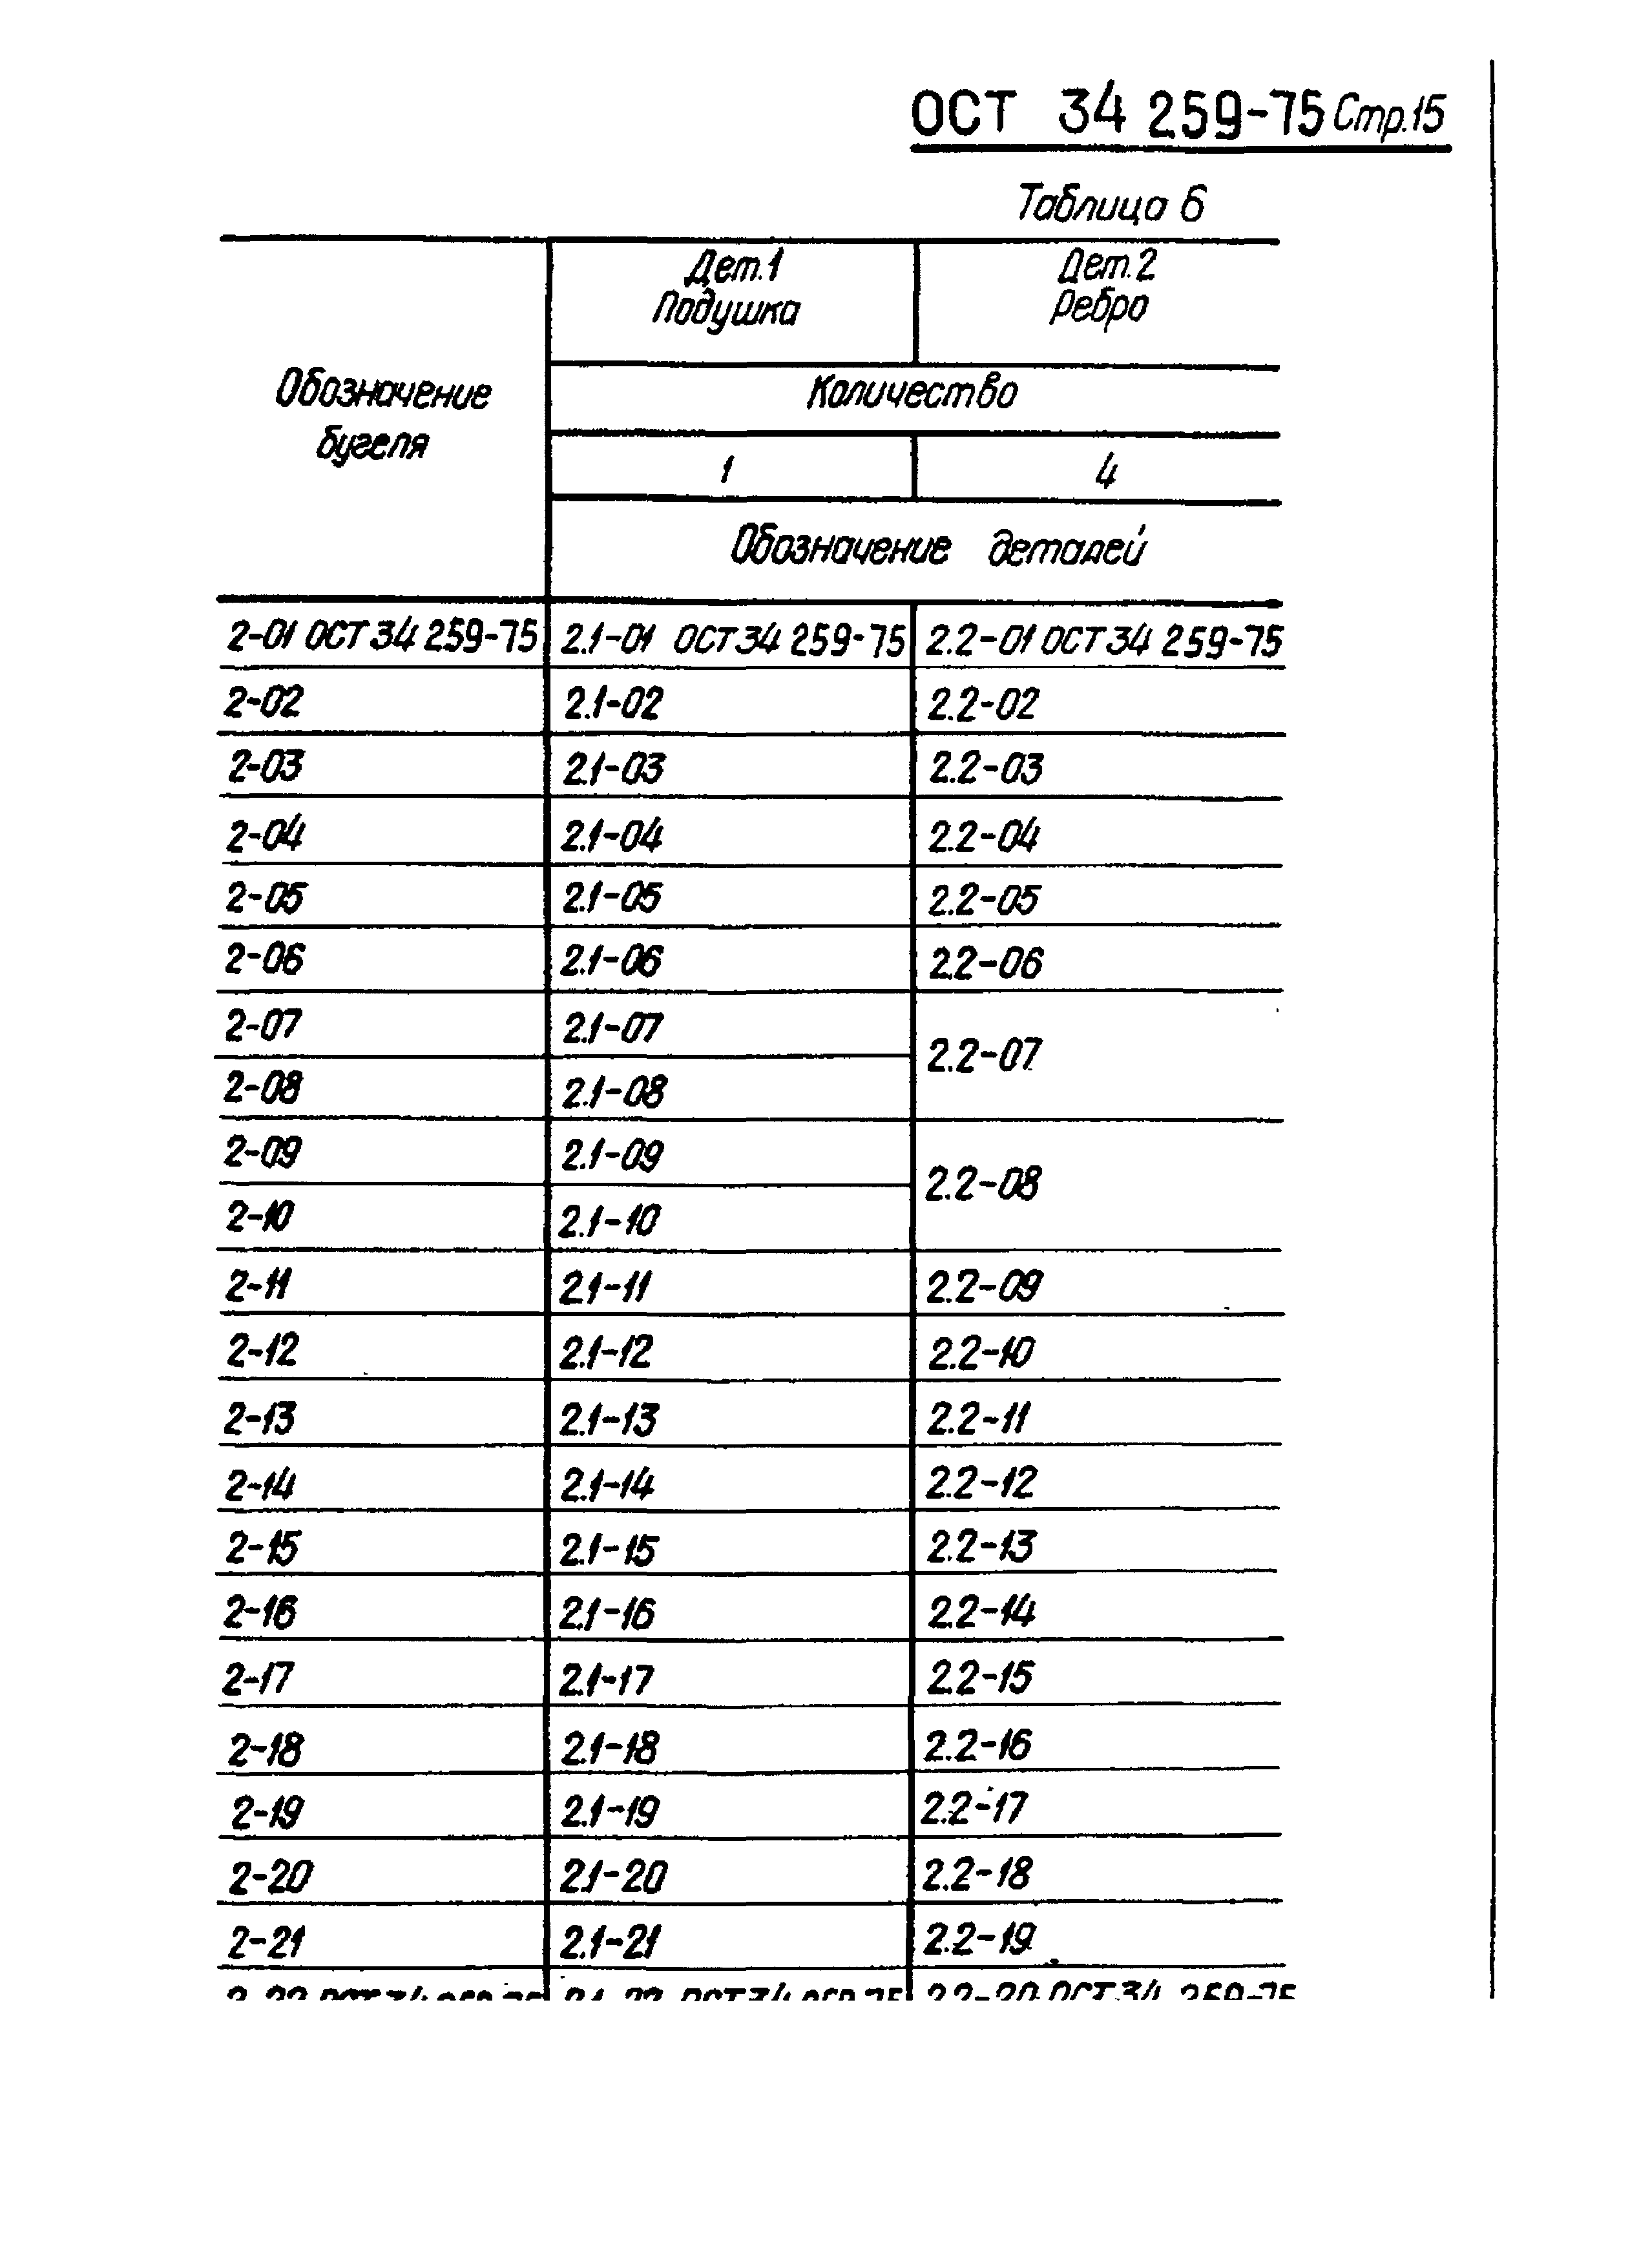 ОСТ 34 259-75 Стр.15
Таблица 6
Обозначение
бугеля
Дет.1
Подушка
Дет.2
Ребро
Количество
1 4
Обозначение деталей
2-01 ОСТ 34 259-75 2.1-01 ОСТ 34 259-75 2.2-01 ОСТ 34 259-75
2-02 2.1-02 2.2-02
2-03 2.1-03 2.2-03
2-04 2.1-04 2.2-04
2-05 2.1-05 2.2-05
2-06 2.1-06 2.2-06
2-07 2.1-07 2.2-07
2-08 2.1-08
2-09 2.1-09 2.2-08
2-10 2.1-10
2-11 2.1-11 2.2-09
2-12 2.1-12 2.2-10
2-13 2.1-13 2.2-11
2-14 2.1-14 2.2-12
2-15 2.1-15 2.2-13
2-16 2.1-16 2.2-14
2-17 2.1-17 2.2-15
2-18 2.1-18 2.2-16
2-19 2.1-19 2.2-17
2-20 2.1-20 2.2-18
2-21 2.1-21 2.2-19
2-22 ОСТ 34 259-75 2.1-22 ОСТ 34 259-75 2.2-20 ОСТ 34 259-75